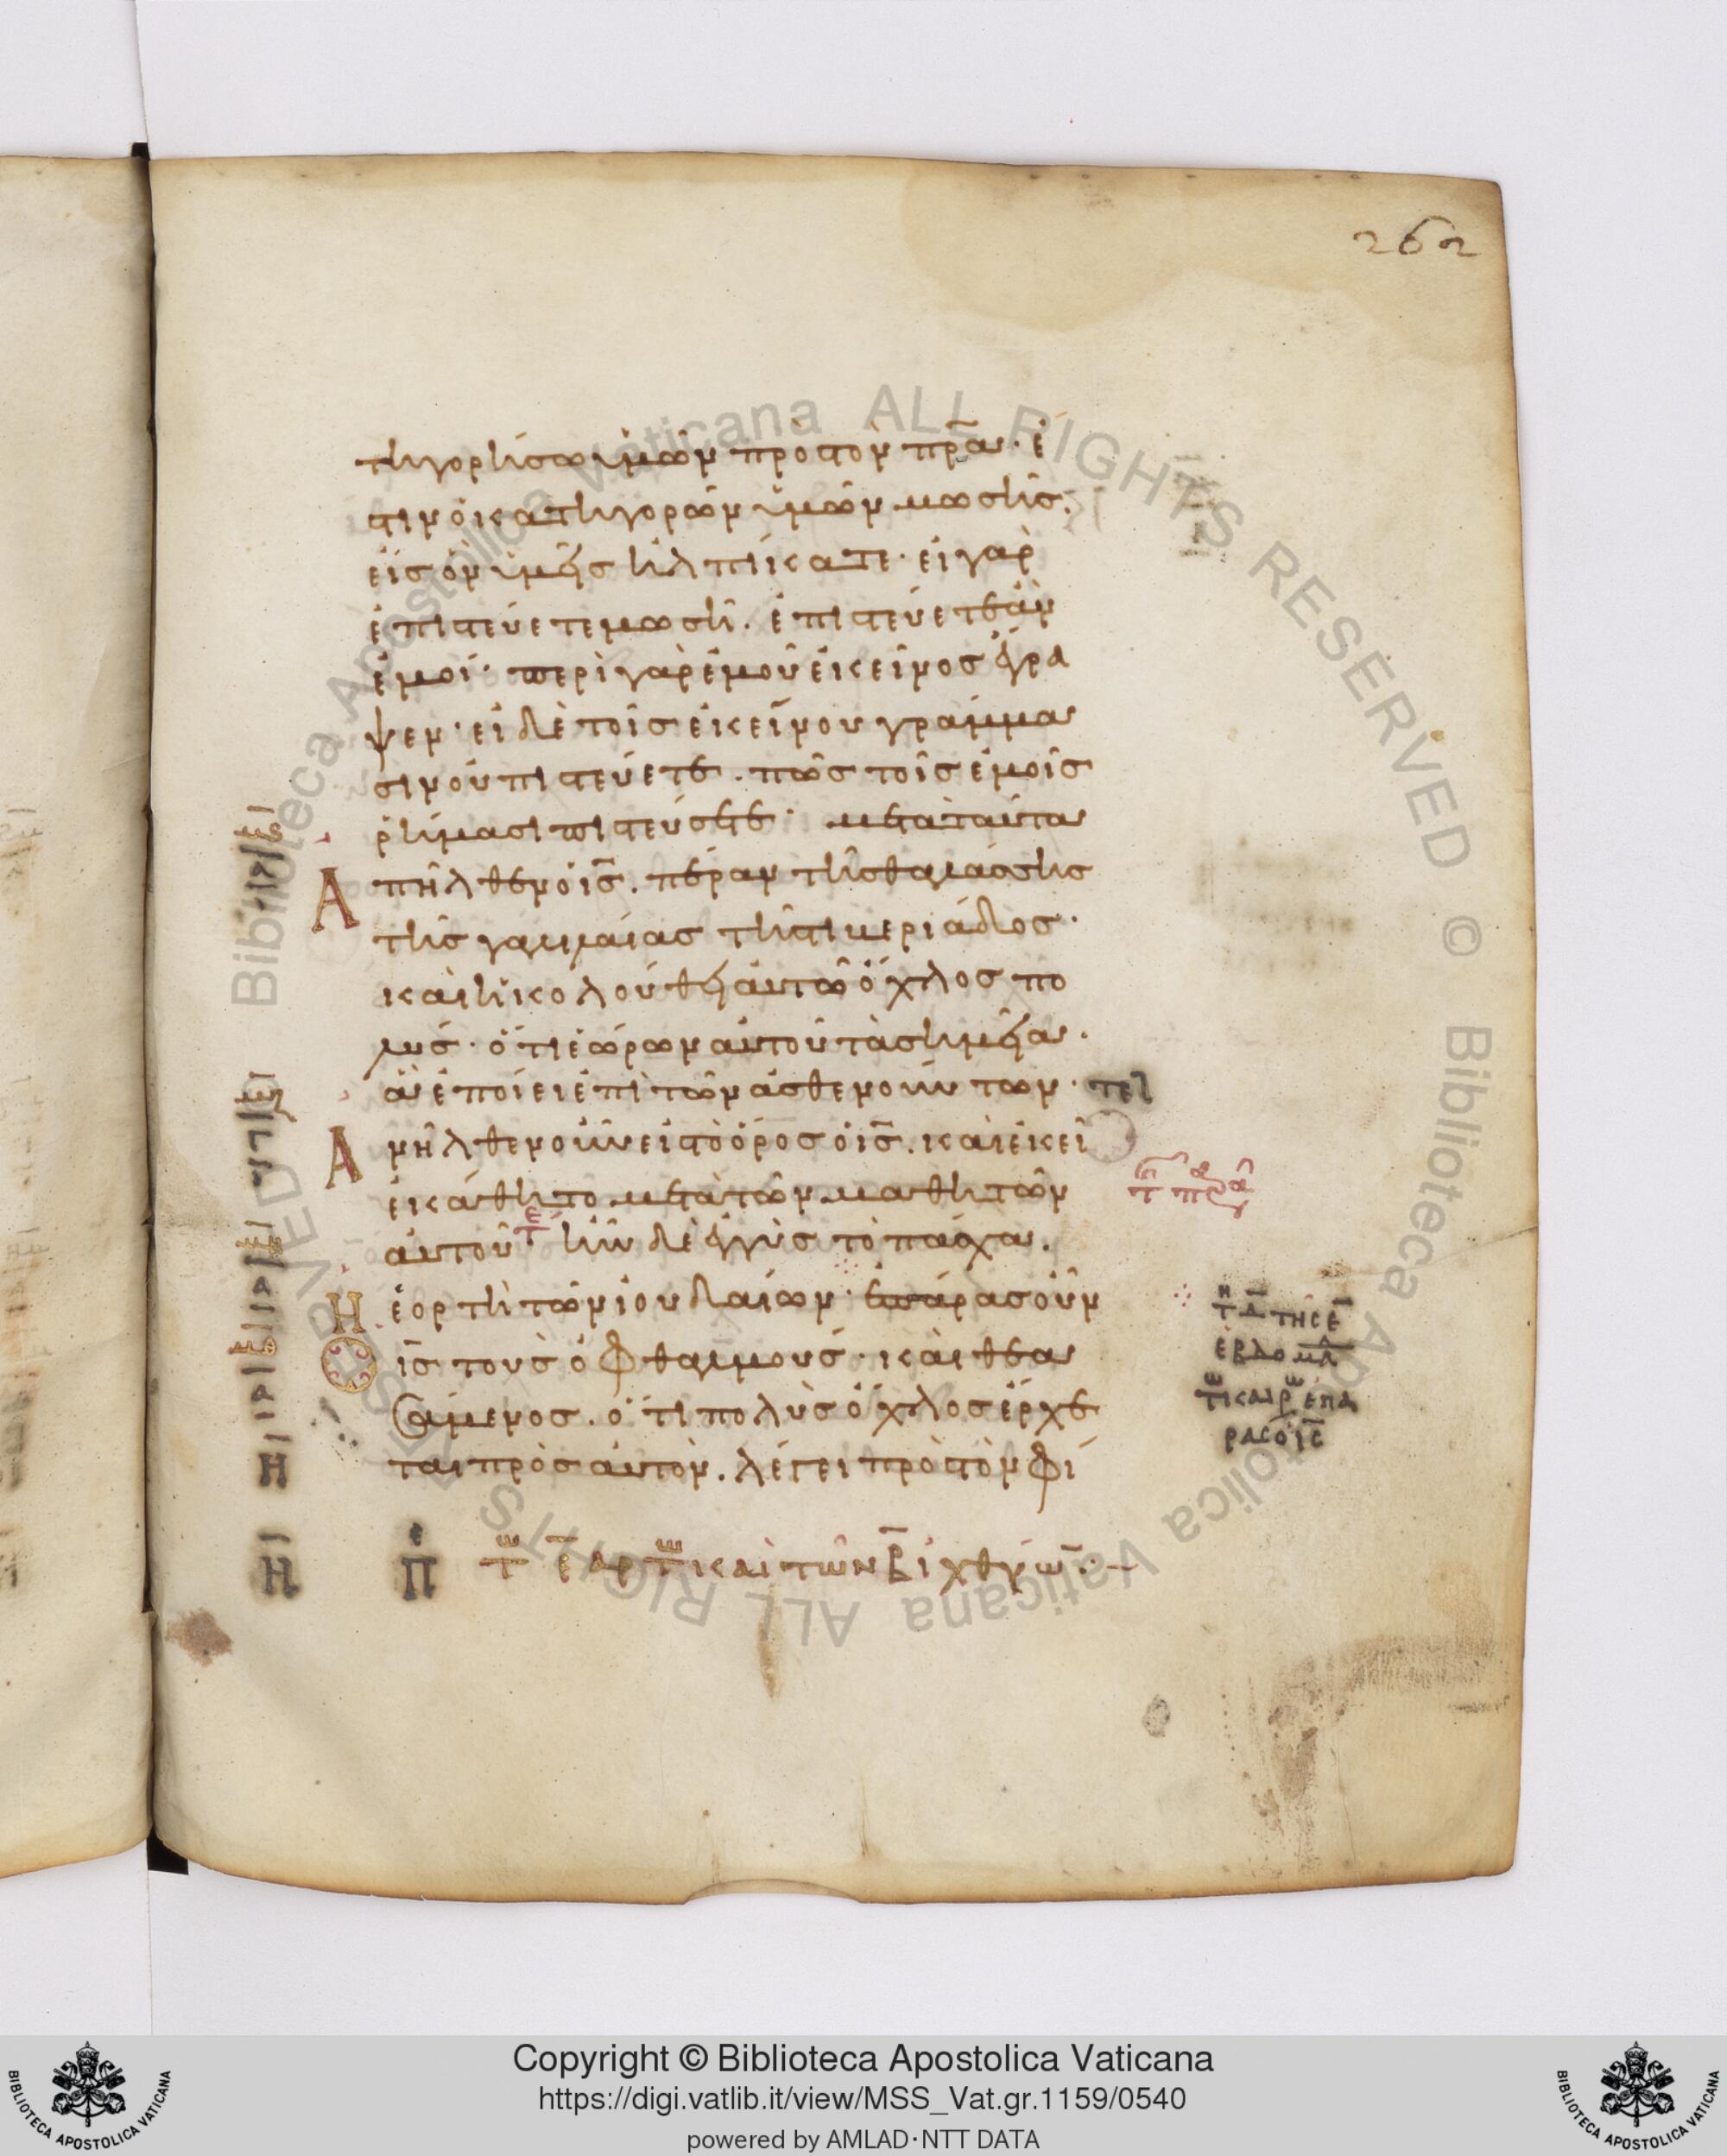 262
τηγορήσω ὑμῶν πρὸς τὸν πρ̅α· ἔ
στιν ὁ κατηγορῶν ὑμῶν μωσῆς.
εἰς ὃν ὑμεῖς ἠλπίκατε· εἰ γὰρ
ἐπιστεύετε μωσῆ. ἐπιστεύετε ἂν
ἐμοί· περὶ γὰρ ἐμοῦ ἐκεῖνος ἔγρα
ψεν· εἰ δὲ τοῖς ἐκείνου γράμμα
σιν οὐ πιστεύετε. πῶς τοῖς ἐμοῖς
ῥήμασι πιστεύσετε· μετὰ ταῦτα
Ἀπῆλθεν ὁ ι̅ς̅. πέραν τῆς θαλάσσης
τῆς γαλιλαίας τῆς τιβεριάδος·
καὶ ἠκολούθει αὐτῶ ὄχλος πο
λύς· ὅτι ἑώρων αὐτοῦ τὰ σημεῖα·
ἃ ἐποίει ἐπὶ τῶν ἀσθενούντων· τελ
Ἀνῆλθεν οὖν εἰς τὸ ὄρος ὁ ι̅ς̅. καὶ ἐκεῖ
ἐκάθητο μετὰ τῶν μαθητῶν
αὐτοῦ· ἦν δὲ ἐγγὺς τὸ πάσχα.
Ἡ ἑορτὴ τῶν ἰουδαίων· ἐπάρας οὖν
Ὁ ι̅ς̅ τοὺς ὀφθαλμούς· καὶ θεα
σάμενος. ὅτι πολὺς ὄχλος ἔρχε
ται πρὸς αὐτόν. λέγει πρὸς τὸν φί
τ̅ η δ̅ τῆς ε̅
ἑβδομα
τω καιρω ἐπα
ρας ὁ ι̅ς̅
Η
Η Π τω ε̅ αρτω καὶ τῶν β̅ ἰχθύω·
Copyright © Biblioteca Apostolica Vaticana
https://digi.vatlib.it/view/MSS_Vat.gr.1159/0540
powered by AMLAD·NTT DATA
BIBLIOTECA APOSTOLICA VATICANA
BIBLIOTECA APOSTOLICA VATICANA
Biblioteca Apostolica Vaticana ALL RIGHTS RESERVED © Biblioteca Apostolica Vaticana ALL RIGHTS RESERVED